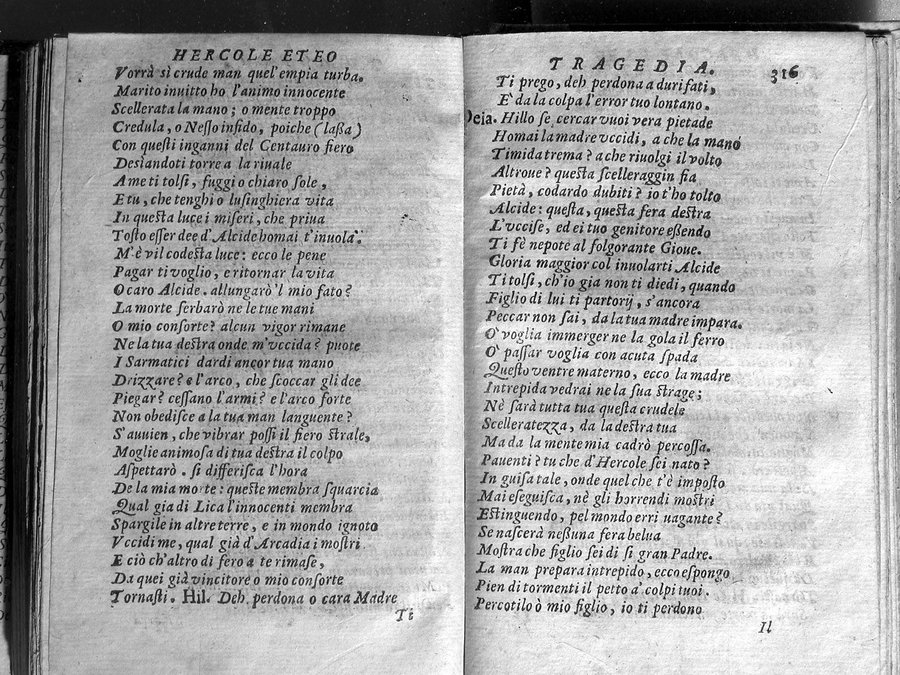 HERCOLE ETEO
Vorrà sì crude man quel'empia turba.
Marito inuitto ho l'animo innocente
Scellerata la mano; o mente troppo
Credula, o Nesso infido, poiche (lassa)
Con questi inganni del Centauro fiero
Desiandoti torre a la riuale
A me ti tolsi, fuggi o chiaro sole,
E tu, che tenghi o lusinghiera vita
In questa luce i miseri, che priua
Tosto esser dee d'Alcide homai t'inuola.
M'è vil codesta luce: ecco le pene
Pagar ti voglio, e ritornar la vita
O caro Alcide. allungarò 'l mio fato?
La morte serbarò ne le tue mani
O mio consorte? alcun vigor rimane
Ne la tua destra onde m'vccida? puote
I Sarmatici dardi ancor tua mano
Drizzare? e l'arco, che scoccar gli dee
Piegar? cessano l'armi? e l'arco forte
Non obedisce a la tua man languente?
S'auuien, che vibrar possi il fiero strale,
Moglie animosa di tua destra il colpo
Aspettarò. si differisca l'hora
De la mia morte: queste membra squarcia
Qual gia di Lica l'innocenti membra
Spargile in altre terre, e in mondo ignoto
Vccidi me, qual già d'Arcadia i mostri
E ciò ch'altro di fero a te rimase,
Da quei già vincitore o mio consorte
Tornasti. Hil. Deh perdona o cara Madre
Ti
TRAGEDIA.
316
Ti prego, deh perdona a duri fati,
E da la colpa l'error tuo lontano.
Deia. Hillo se cercar vuoi vera pietade
Homai la madre vccidi, a che la mano
Timida trema? a che riuolgi il volto
Altroue? questa scelleraggin fia
Pietà, codardo dubiti? io t'ho tolto
Alcide: questa, questa fera destra
L'vccise, ed ei tuo genitore essendo
Ti fè nepote al folgorante Gioue.
Gloria maggior col inuolarti Alcide
Ti tolsi, ch'io gia non ti diedi, quando
Figlio di lui ti partorij, s'ancora
Peccar non sai, da la tua madre impara.
O' voglia immerger ne la gola il ferro
O' passar voglia con acuta spada
Questo ventre materno, ecco la madre
Intrepida vedrai ne la sua strage;
Nè sarà tutta tua questa crudele
Scelleratezza, da la destra tua
Ma da la mente mia cadrò percossa.
Pauenti? tu che d'Hercole sei nato?
In guisa tale, onde quel che t'è imposto
Mai eseguisca, nè gli horrendi mostri
Estinguendo, pel mondo erri vagante?
Se nascerà nessuna fera belua
Mostra che figlio sei di sì gran Padre.
La man prepara intrepido, ecco espongo
Pien di tormenti il petto a' colpi tuoi.
Percotilo ò mio figlio, io ti perdono
Il